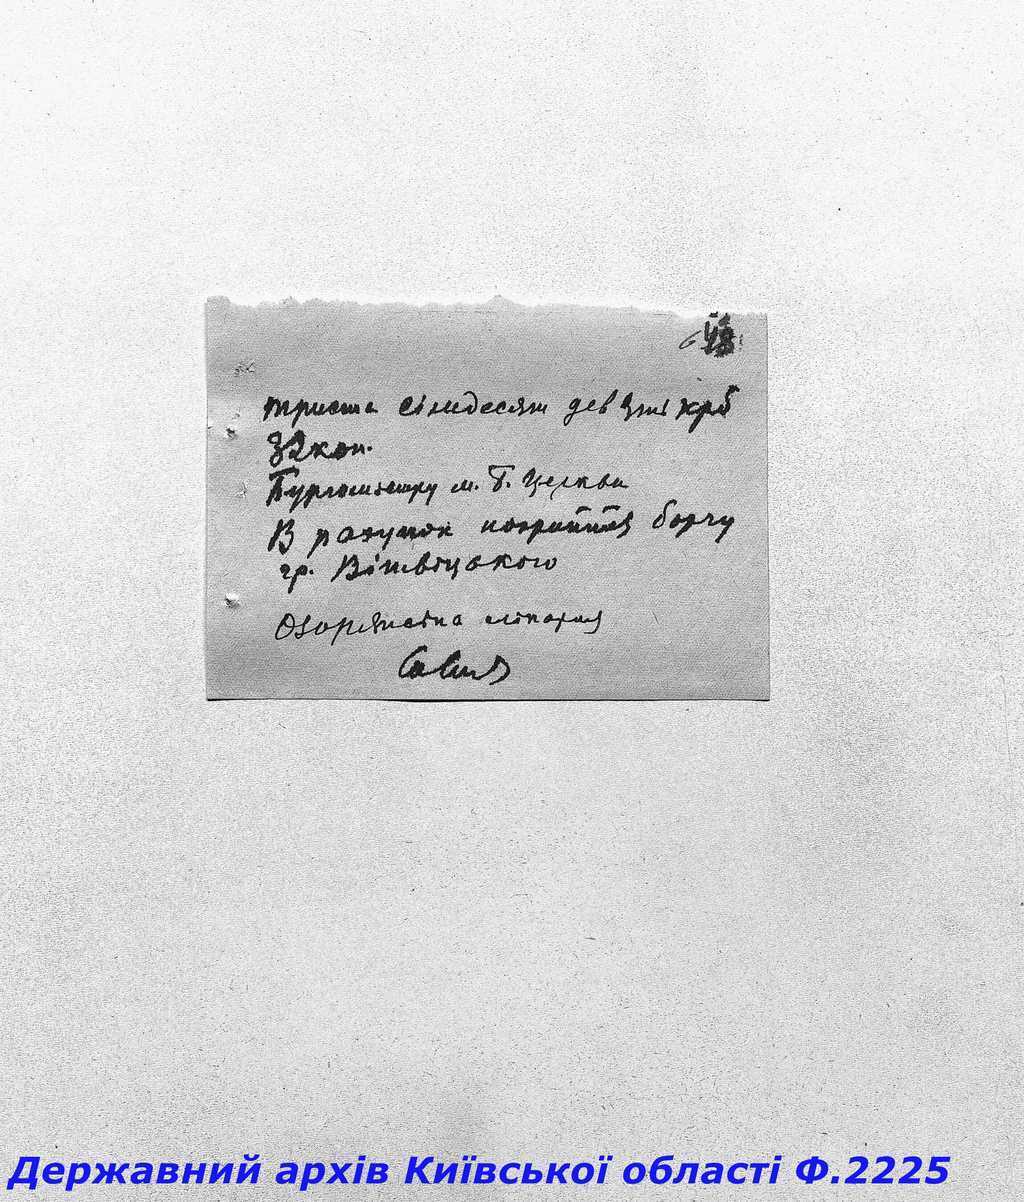 триста сімдесят девять крб
32 коп.
Бургомістру м. Б. Церкви
В рахунок покриття боргу
гр. Вітвіцького
Державний архів Київської області Ф.2225